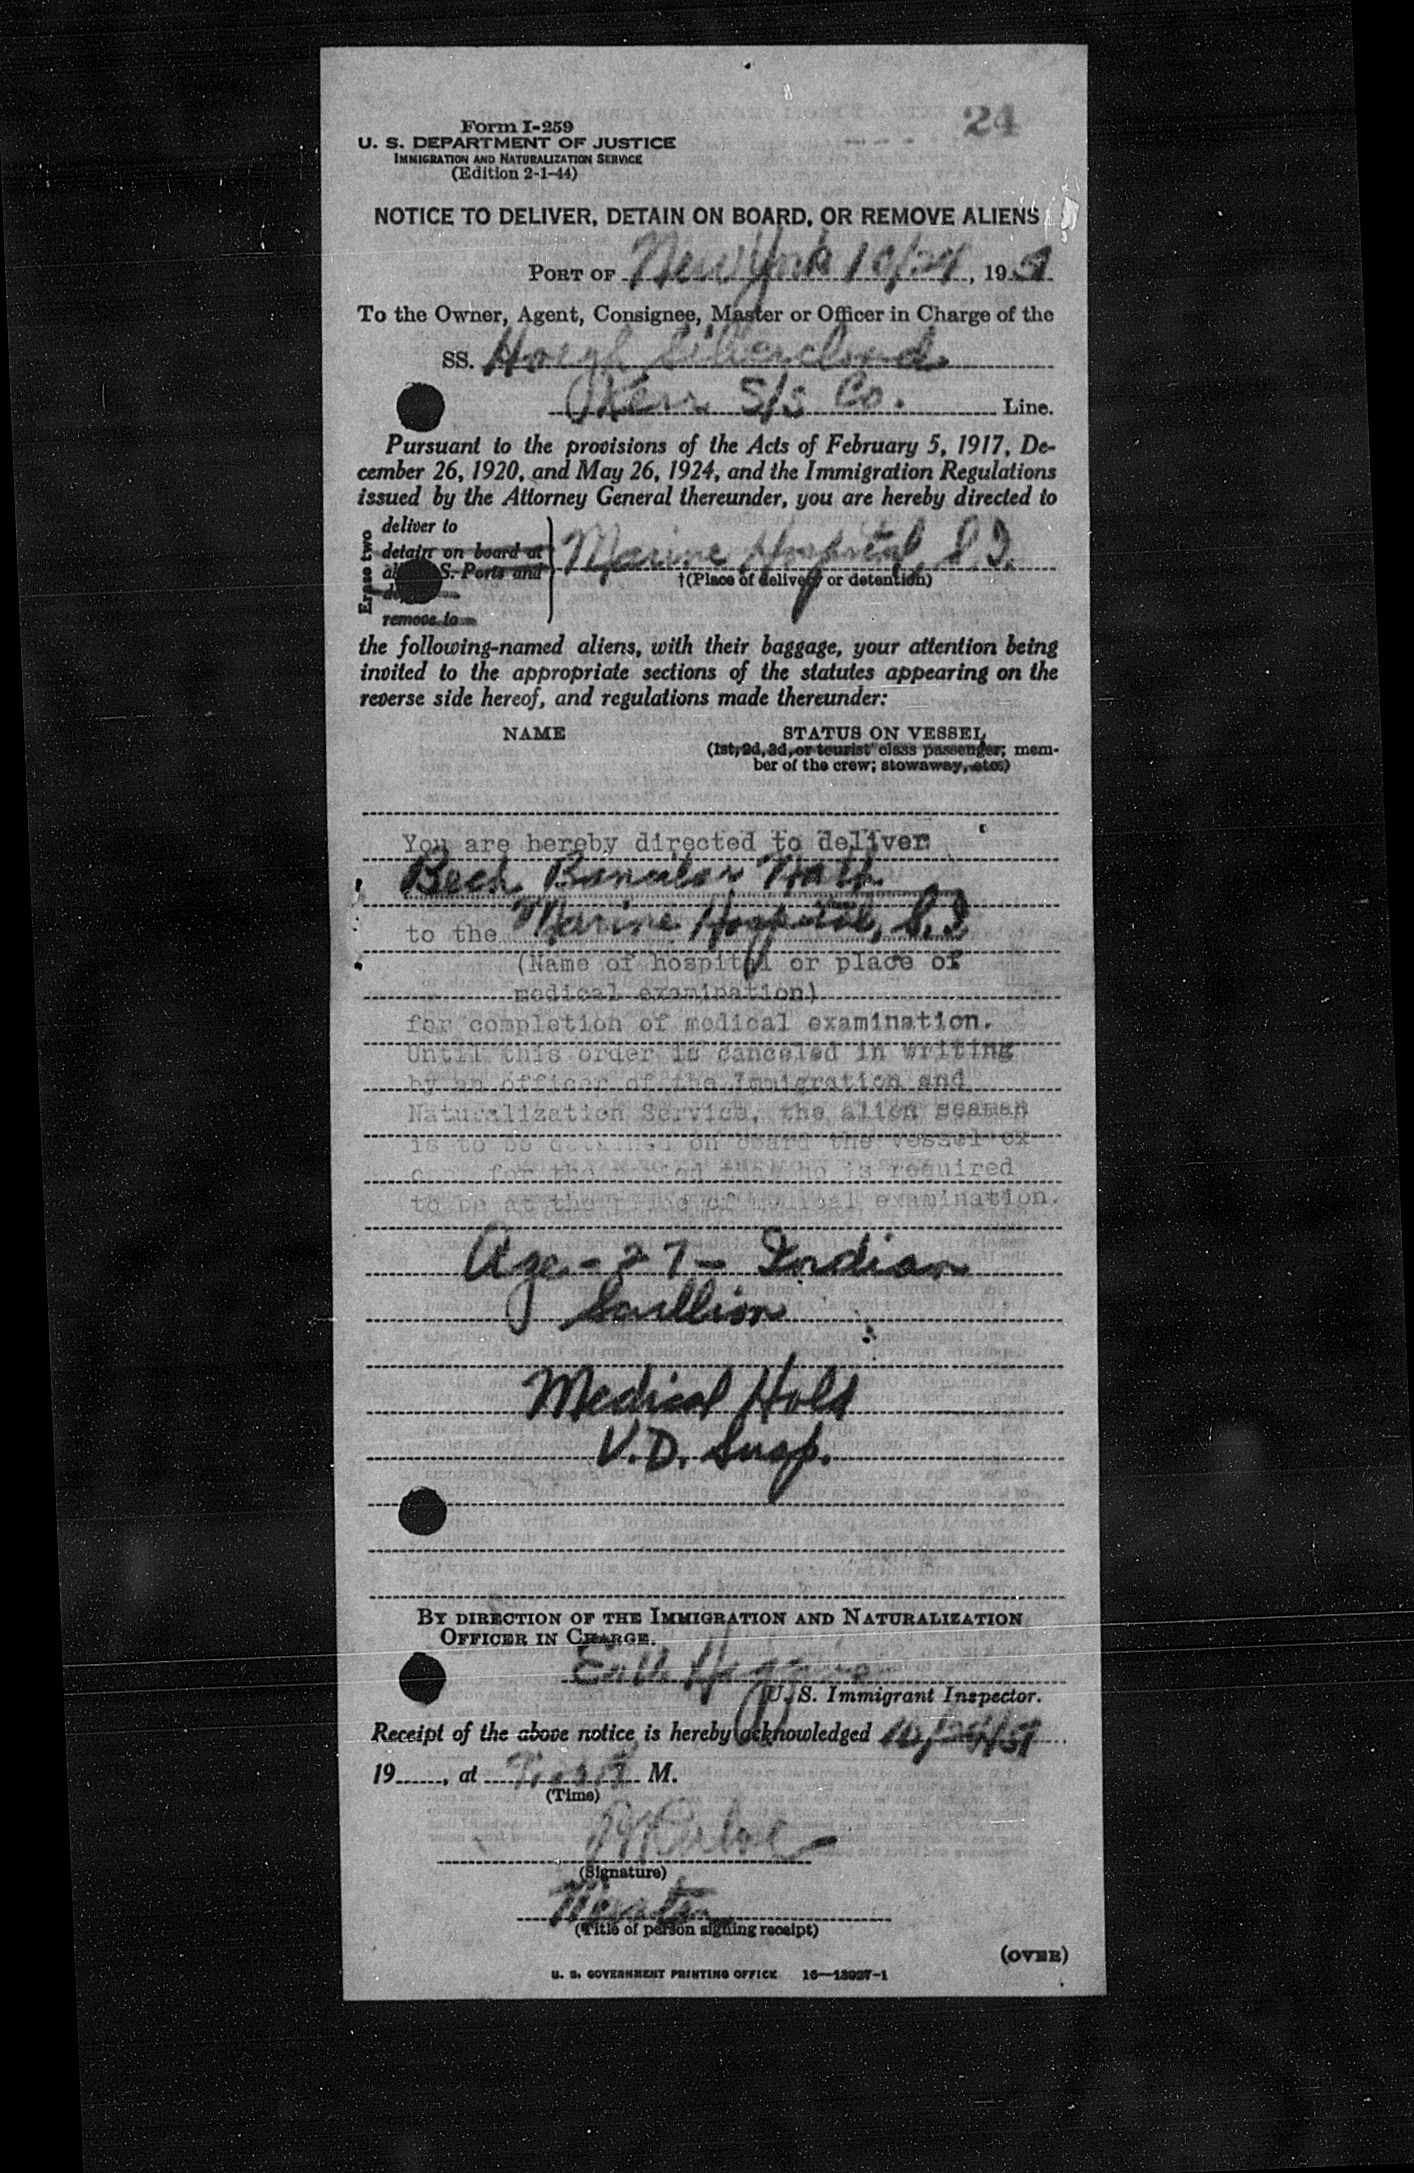 24
Form I-259
U. S. DEPARTMENT OF JUSTICE
IMMIGRATION AND NATURALIZATION SERVICE
(Edition 2-1-44)
NOTICE TO DELIVER, DETAIN ON BOARD, OR REMOVE ALIENS
PORT OF New York 10/24, 1951
To the Owner, Agent, Consignee, Master or Officer in Charge of the
SS. Hoegh Silvercloud
Kerr S/S Co. Line.
Pursuant to the provisions of the Acts of February 5, 1917, De-
cember 26, 1920, and May 26, 1924, and the Immigration Regulations
issued by the Attorney General thereunder, you are hereby directed to
Erase two
deliver to
detain on board at
S. Ports and
remove to
Marine Hospital, S.I.
†(Place of delivery or detention)
the following-named aliens, with their baggage, your attention being
invited to the appropriate sections of the statutes appearing on the
reverse side hereof, and regulations made thereunder:
NAME
STATUS ON VESSEL
(1st, 2d, 3d, or tourist class passenger; mem-
ber of the crew; stowaway, etc.)
You are hereby directed to deliver
Bech Nath
to the Marine Hospital, S.I.
(Name of hospital or place of
medical examination)
for completion of medical examination.
Until this order is canceled in writing
by an officer of the Immigration and
Naturalization Service, the alien seaman
is to be detained on board the vessel ex-
for the period he is required
to be at the place of medical examination.
Age - 27 - Indian
Scullion
Medical Hold
V.D. Susp.
BY DIRECTION OF THE IMMIGRATION AND NATURALIZATION
OFFICER IN CHARGE.
U. S. Immigrant Inspector.
Receipt of the above notice is hereby acknowledged 10/24/51
19, at M.
(Time)
(Signature)
(Title of person signing receipt)
(OVER)
U. S. GOVERNMENT PRINTING OFFICE 16—13027-1